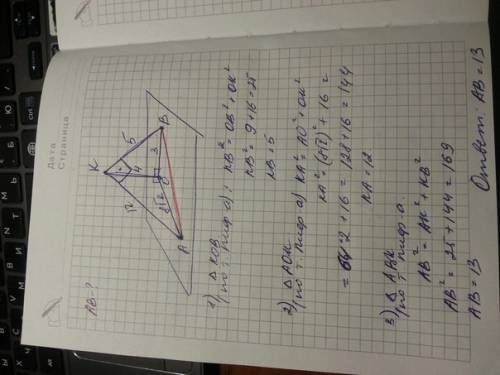 Дата
Страница
AB-?
K
5
B
4
3
O
12
8√2
A
1) △ KOB
по т. Пифаг.): KB² = OB² + OK²
KB² = 9 + 16 = 25
KB = 5
2) △ AOK
по т. Пифаг.) KA² = AO² + OK²
KA² = (8√2)² + 16 =
= 64·2 + 16 = 128 + 16 = 144
KA = 12
3) △ ABK
по т. Пифаг.
AB² = AK² + KB²
AB² = 25 + 144 = 169
AB = 13
Ответ: AB = 13